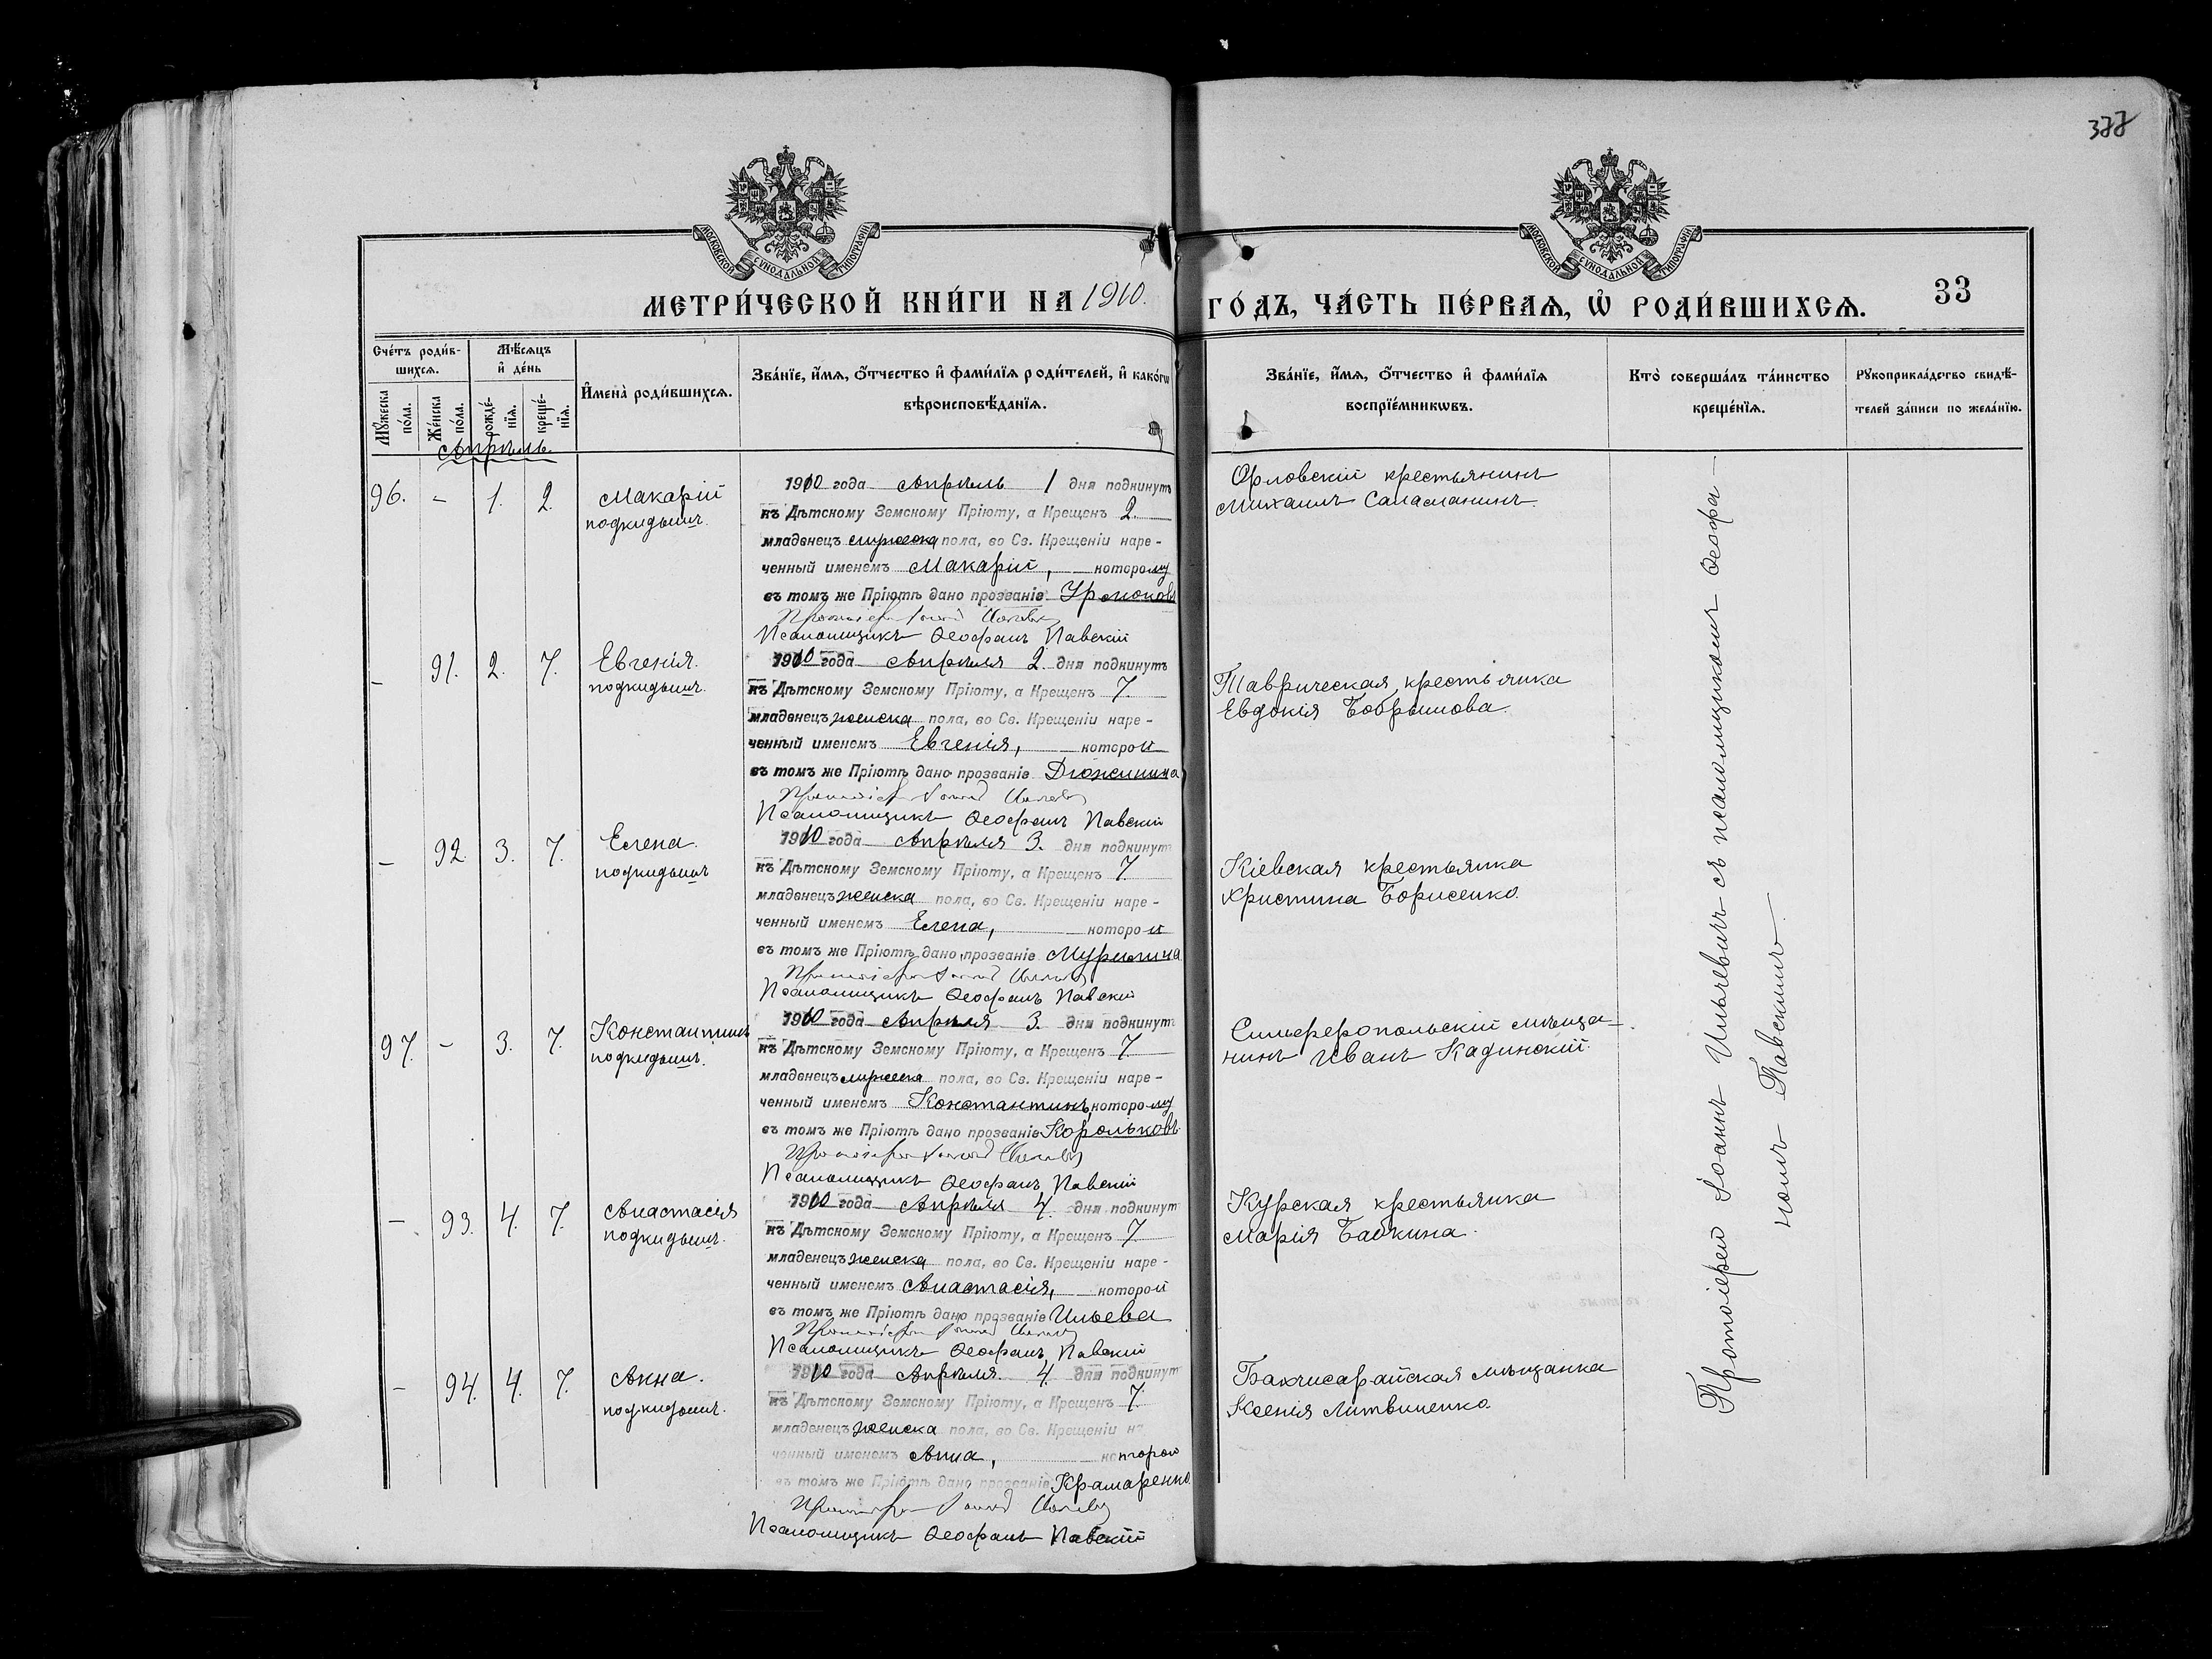 377
МОСКОВСКОЙ СѴНОДАЛЬНОЙ ТИПОГРАФІИ
МОСКОВСКОЙ СѴНОДАЛЬНОЙ ТИПОГРАФІИ
МЕТРИ́ЧЕСКОЙ КНИ́ГИ НА 1910. ГО́ДЪ, ЧА́СТЬ ПЕ́РВАѦ, Ѡ РОДИ́ВШИХСѦ.
33
Сче́тъ роди́в-
шихсѧ.
Мꙋ́жеска по́ла.
Же́нска по́ла.
Мѣ́сѧцъ
и҆ де́нь
рожде́-
нїѧ.
креще́-
нїѧ.
И҆мена̀ роди́вшихсѧ.
Зва́нїе, и҆́мѧ, ѻ҆́тчество и҆ фами́лїѧ роди́телей, и҆ како́гѡ
вѣроисповѣ́данїѧ.
Зва́нїе, и҆́мѧ, ѻ҆́тчество и҆ фами́лїѧ
воспрїе́мникѡвъ.
Кто̀ соверша́лъ та́инство
креще́нїѧ.
Рꙋкоприкла́дство свидѣ́-
телей за́писи по жела́нїю.
Апрѣль.
96. - 1. 2. Макарій
подкидышъ.
1910 года Апрѣль 1 дня подкинутъ
къ Дѣтскому Земскому Пріюту, а Крещенъ 2.
младенецъ мужеска пола, во Св. Крещеніи наре-
ченный именемъ Макарій, которому
въ томъ же Пріютѣ дано прозваніе
Псаломщикъ Ѳеофанъ Павскій
Орловскій крестьянинъ
Михаилъ Саласманинъ.
- 91. 2. 7. Евгенія.
подкидышъ.
1910 года Апрѣля 2. дня подкинутъ
къ Дѣтскому Земскому Пріюту, а Крещенъ 7.
младенецъ женска пола, во Св. Крещеніи наре-
ченный именемъ Евгенія, которой
въ томъ же Пріютѣ дано прозваніе Дюжинина
Псаломщикъ Ѳеофанъ Павскій
Таврическая крестьянка
Евдокія Бобрышова.
- 92 3. 7. Елена.
подкидышъ
1910 года Апрѣля 3. дня подкинутъ
къ Дѣтскому Земскому Пріюту, а Крещенъ 7.
младенецъ женска пола, во Св. Крещеніи наре-
ченный именемъ Елена, которой
въ томъ же Пріютѣ дано прозваніе Мурыгина
Псаломщикъ Ѳеофанъ Павскій
Кіевская крестьянка
Христина Борисенко.
97. - 3. 7. Константинъ
подкидышъ.
1910 года Апрѣля 3. дня подкинутъ
къ Дѣтскому Земскому Пріюту, а Крещенъ 7.
младенецъ мужеска пола, во Св. Крещеніи наре-
ченный именемъ Константинъ, которому
въ томъ же Пріютѣ дано прозваніе Корольковъ
Псаломщикъ Ѳеофанъ Павскій
Симферопольскій мѣща-
нинъ Иванъ Кадинскій.
- 93. 4. 7. Анастасія
подкидышъ.
1910 года Апрѣля 4. дня подкинутъ
къ Дѣтскому Земскому Пріюту, а Крещенъ 7
младенецъ женска пола, во Св. Крещеніи наре-
ченный именемъ Анастасія, которой
въ томъ же Пріютѣ дано прозваніе Ильева
Псаломщикъ Ѳеофанъ Павскій
Курская крестьянка
Марія Бабкина.
- 94. 4. 7. Анна.
подкидышъ.
1910 года Апрѣля. 4. дня подкинутъ
къ Дѣтскому Земскому Пріюту, а Крещенъ 7.
младенецъ женска пола, во Св. Крещеніи н
ченный именемъ Анна, которой
въ томъ же Пріютѣ дано прозваніе Крамаренко
Псаломщикъ Ѳеофанъ Павскій
Бахчисарайская мѣщанка
Ксенія Литвиненко.
Протоіерей Іоаннъ Ильевичъ съ псаломщикомъ Ѳеофа-
номъ Павскимъ.